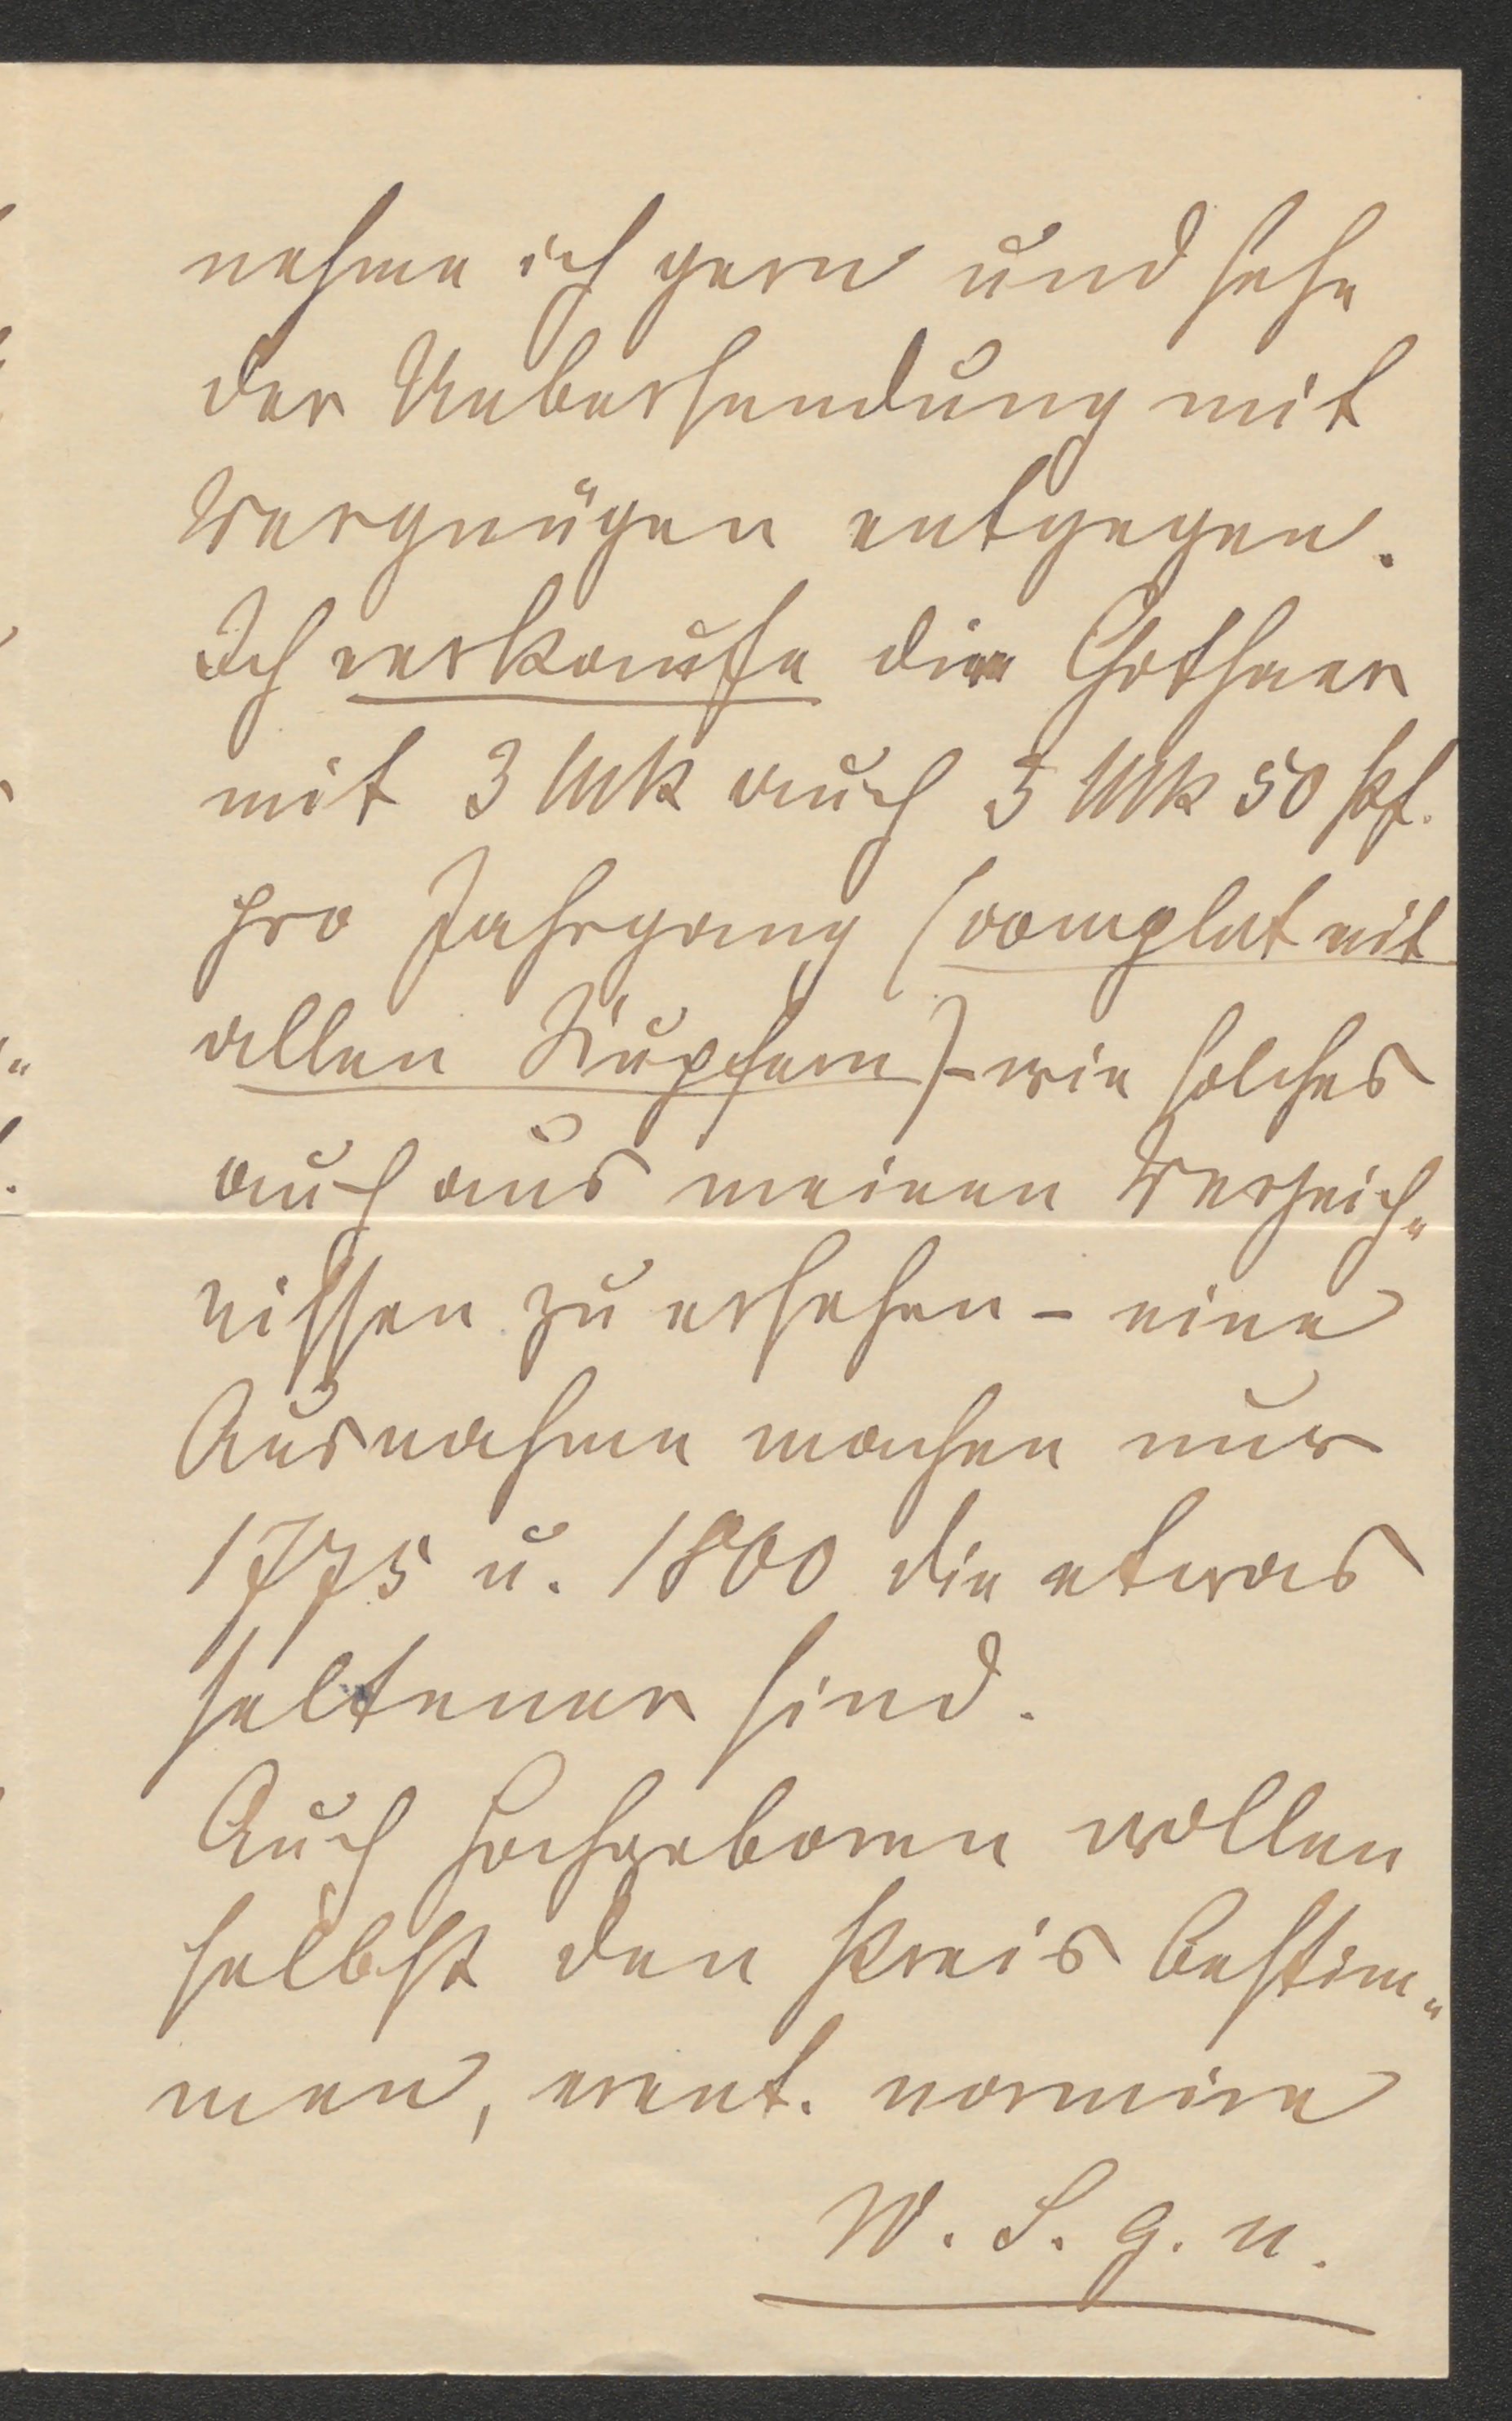 nehme ich gern und sehe
der Uebersendung mit
Vergnügen entgegen.
Ich verkaufe die Gothaer
mit 3 Mk auch 3 Mk 50 Pf.
pro Jahrgang (complet mit
allen Kupfern) - wie solches
auch aus meinen Verzeich„
nissen zu ersehen - eine
Ausnahme machen nur
1775 u. 1800 die etwas
seltener sind.
Auch Hochgeboren wollen
selbst den Preis bestim„
men, event. normire
W. S. g. u.